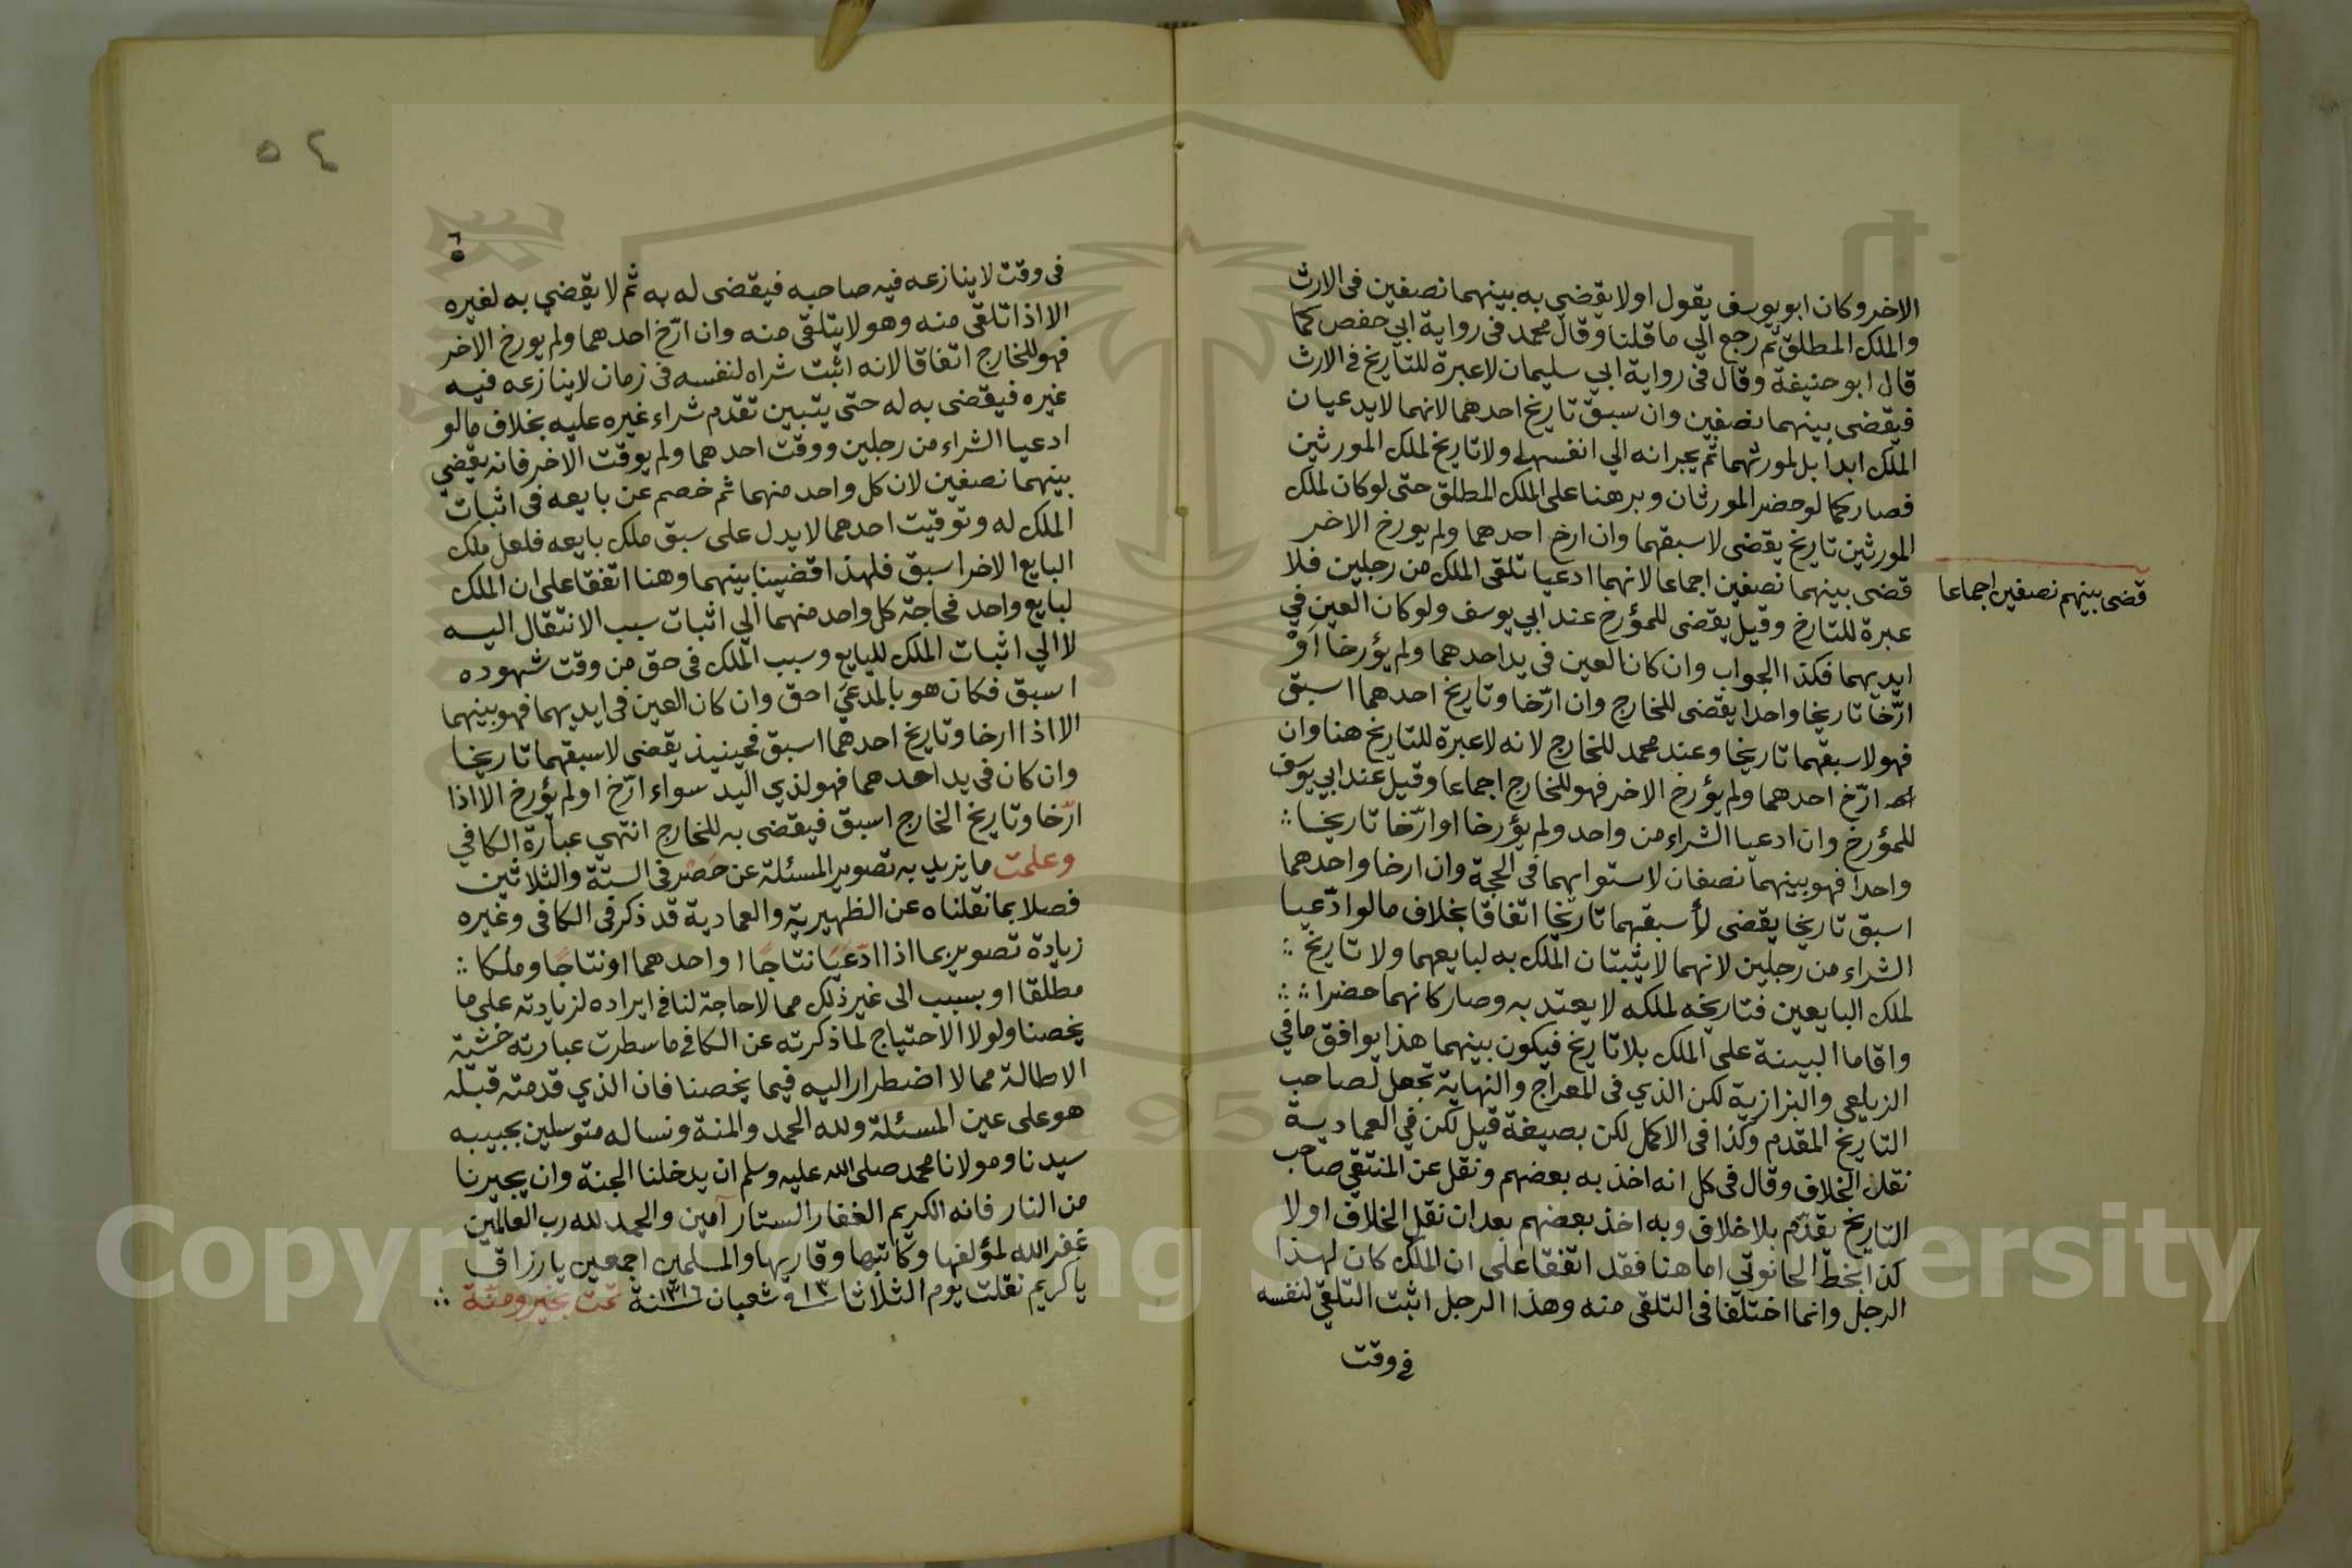 الاخر وكان ابو يوسف يقول اولا يقضي به بينهما نصفين فى الارث
والملك المطلق ثم رجع الي ما قلنا وقال محمد فى رواية ابي حفص كما
قال ابو حنيفة وقال فى رواية ابي سليمان لاعبرة للتاريخ فى الارث
فيقضى بينهما نصفين وان سبق تاريخ احدهما لانهما لايدعيان
الملك ابدا بل لمورثهما ثم يجرانه الي انفسهما ولا تاريخ لملك المورثين
فصار كما لو حضر المورثان وبرهنا على الملك المطلق حتى لوكان لملك
المورثين تاريخ يقضى لاسبقهما وان ارخ احدهما ولم يورخ الاخر
قضى بينهما نصفين اجماعا لانهما ادعيا تلقى الملك من رجلين فلا
قضى بينهم نصفين اجماعا
عبرة للتارخ وقيل يقضى للمؤرخ عند ابي يوسف ولو كان العين في
ايديهما فكذا الجواب وان كان العين فى يد احدهما ولم يؤرخا اَوْ
ارّخا تاريخا واحدا يقضى للخارج وان ارّخا وتاريخ احدهما اسبق
فهو لاسبقهما تاريخا وعند محمد للخارج لانه لاعبرة للتاريخ هنا وان
ارّخ احدهما ولم يؤرخ الاخر فهو للخارج اجماعا وقيل عند ابي يوسف
للمؤرخ وان ادعيا الشراء من واحد ولم يؤرخا او ارّخا تاريخا
واحدا فهو بينهما نصفان لاستوائهما فى الحجة وان ارخا واحدهما
اسبق تاريخا يقضى لأسبقهما تاريخا اتفاقا بخلاف مالو ادّعيا
الشراء من رجلين لانهما لايثبتان الملك به لبايعهما ولا تاريخ
لملك البايعين فتاريخه لملكه لا يعتد به وصار كانهما حضرا
واقاما البينة على الملك بلا تاريخ فيكون بينهما هذا يوافق مافي
الزيلعي والبزازية لكن الذي فى المعراج والنهاية تجعل لصاحب
التاريخ المقدم وكذا فى الاكمل لكن بصيغة قيل لكن في العمادية
نقلا الخلاف وقال فى كل انه اخذ به بعضهم ونقل عن المنتقي صاحب
التاريخ يقدّم بلا خلاف وبه اخذ بعضهم بعد ان نقل الخلاف اولا
كذا بخط الحانوتي اما هنا فقد اتفقا على ان الملك كان لهذا
الرجل وانما اختلفا فى التلقى منه وهذا الرجل اثبت التلقي لنفسه
فى وقت
٥٤
فى وقت لاينازعه فيه صاحبه فيقضى له به ثم لا يقضي به لغيره
الا اذا تلقى منه وهو لايتلقى منه وان ارّخ احدهما ولم يورخ الاخر
فهو للخارج اتفاقا لانه اثبت شراه لنفسه فى زمان لاينازعه فيه
غيره فيقضى به له حتى يتبين تقدم شراء غيره عليه بخلاف مالو
ادعيا الشراء من رجلين ووقت احدهما ولم يوقت الاخر فانه يقضي
بينهما نصفين لان كل واحد منهما ثم خصم عن بايعه فى اثبات
الملك له وتوقيت احدهما لايدل على سبق ملك بايعه فلعل ملك
البايع الاخر اسبق فلهذا قضينا بينهما وهنا اتفقا على ان الملك
لبايع واحد فحاجة كل واحد منهما الي اثبات سبب الانتقال اليه
لا الي اثبات الملك للبايع وسبب الملك فى حق من وقت شهوده
اسبق فكان هو بالمدعي احق وان كان العين فى ايديهما فهو بينهما
الا اذا ارخا وتاريخ احدهما اسبق فحينيذ يقضى لاسبقهما تاريخا
وان كان فى يد احدهما فهو لذي اليد سواء ارّخ او لم يؤرخ الا اذا
ارّخا وتاريخ الخارج اسبق فيقضى به للخارج انتهي عبارة الكافي
وعلمت ما يزيد به تصوير المسئلة عن حصر فى الستة والثلاثين
فصلا بما نقلناه عن الظهيرية والعمادية قد ذكر فى الكافى وغيره
زيادة تصوير بما اذا ادّعَيَا نتاجًا او احدهما او نتاجًا وملكا
مطلقا او بسبب الى غير ذلك مما لاحاجة لنا فى ايراده لزيادته على ما
يخصنا ولولا الاحتياج لما ذكرته عن الكافى ما سطرت عبارته خشية
الاطالة مما لا اضطرار اليه فيما يخصنا فان الذي قدمته قبله
هو على عين المسئلة ولله الحمد والمنة ونساله متوسلين بحبيبه
سيدنا ومولانا محمد صلى الله عليه وسلم ان يدخلنا الجنة وان يجيرنا
من النار فانه الكريم الغفار الستار آمين والحمد لله رب العالمين
غفر الله لمؤلفها وكاتبها وقاريها والمسلمين اجمعين يا رزاق
يا كريم نقلت يوم الثلاثا ١٣ فى شعبان سنة ١٣١٦ تمت بخير ومنّة
Copyright © King Saud University